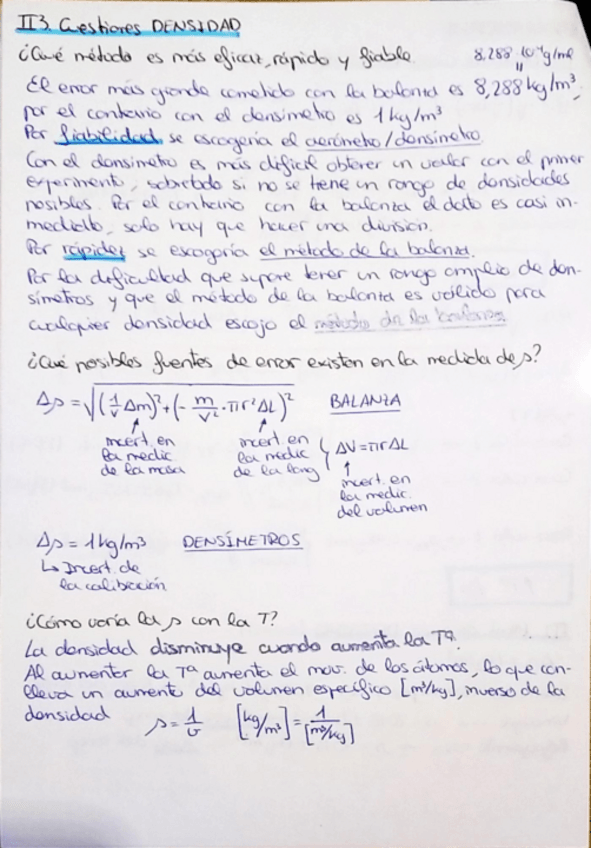 II3. Cuestiones DENSIDAD
¿Qué método es más eficaz, rápido y fiable. 8,288·10⁻³g/ml
=
El error más grande cometido con la balanza es 8,288 kg/m³,
por el contrario con el densímetro es 1 kg/m³
Por fiabilidad, se escogería el aerómetro/densímetro
Con el densímetro es más difícil obtener un valor con el primer
experimento, sobretodo si no se tiene un rango de densidades
posibles. Por el contrario con la balanza el dato es casi in-
mediato, solo hay que hacer una división.
Por rápidez se escogería el método de la balanza.
Por la dificultad que supone tener un rango amplio de den-
símetros y que el método de la balanza es válido para
cualquier densidad escojo el método de la balanza
¿Qué posibles fuentes de error existen en la medida de ρ?
Δρ = √((1/V Δm)² + (- m/V² · πr² ΔL)²) BALANZA
incert. en la medic. de la masa
incert. en la medic. de la long
ΔV = πr ΔL
incert. en la medic. del volumen
Δρ = 1 kg/m³ DENSÍMETROS
↳ Incert. de
la calibración
¿Cómo varía la ρ con la T?
La densidad disminuye cuando aumenta la Tª.
Al aumentar la Tª aumenta el mov. de los átomos, lo que con-
lleva un aumento del volumen específico [m³/kg], inverso de la
densidad ρ = 1/v [kg/m³] = 1/[m³/kg]